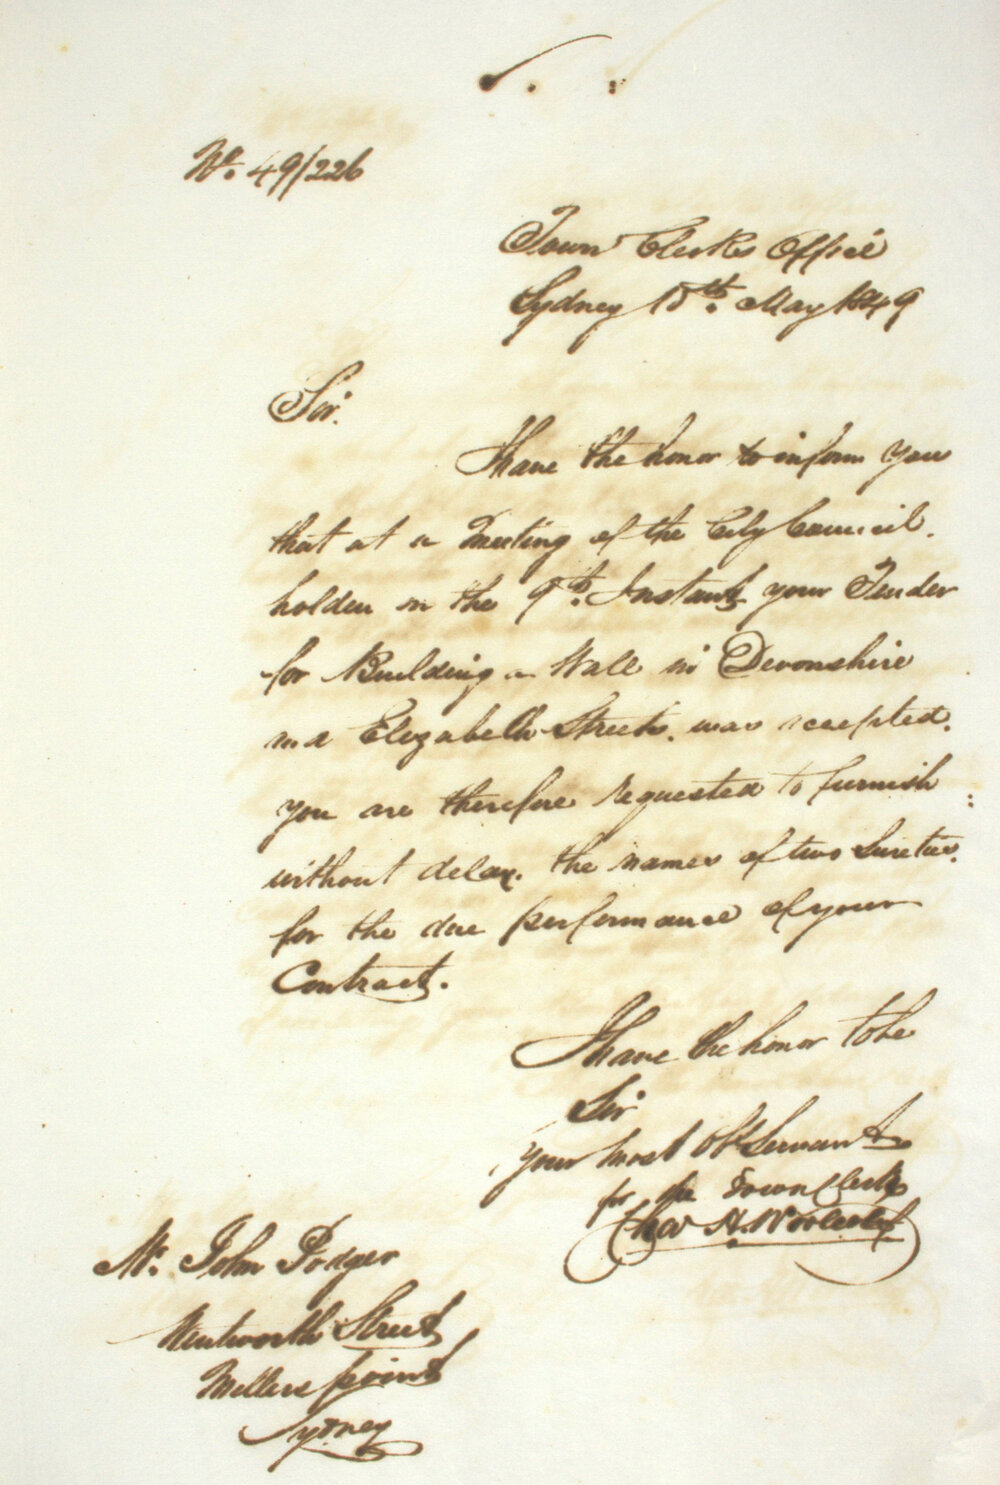 No. 49/226
Town Clerks Office
Sydney 15th. May 1849
Sir.
I have the honor to inform you
that at a Meeting of the City Council.
holden on the 9th. Instant your Tender
for Building a Wall in Devonshire
and Elizabeth Streets. was accepted.
you are therefore requested to furnish
without delay. the names of two Sureties.
for the due performance of your
Contract.
I have the honor to be
Sir
your most Obt Servant
for the Town Clerk
Chas H. Woolcott
Mr. John Podger
Wentworth Street
Millers point
Sydney